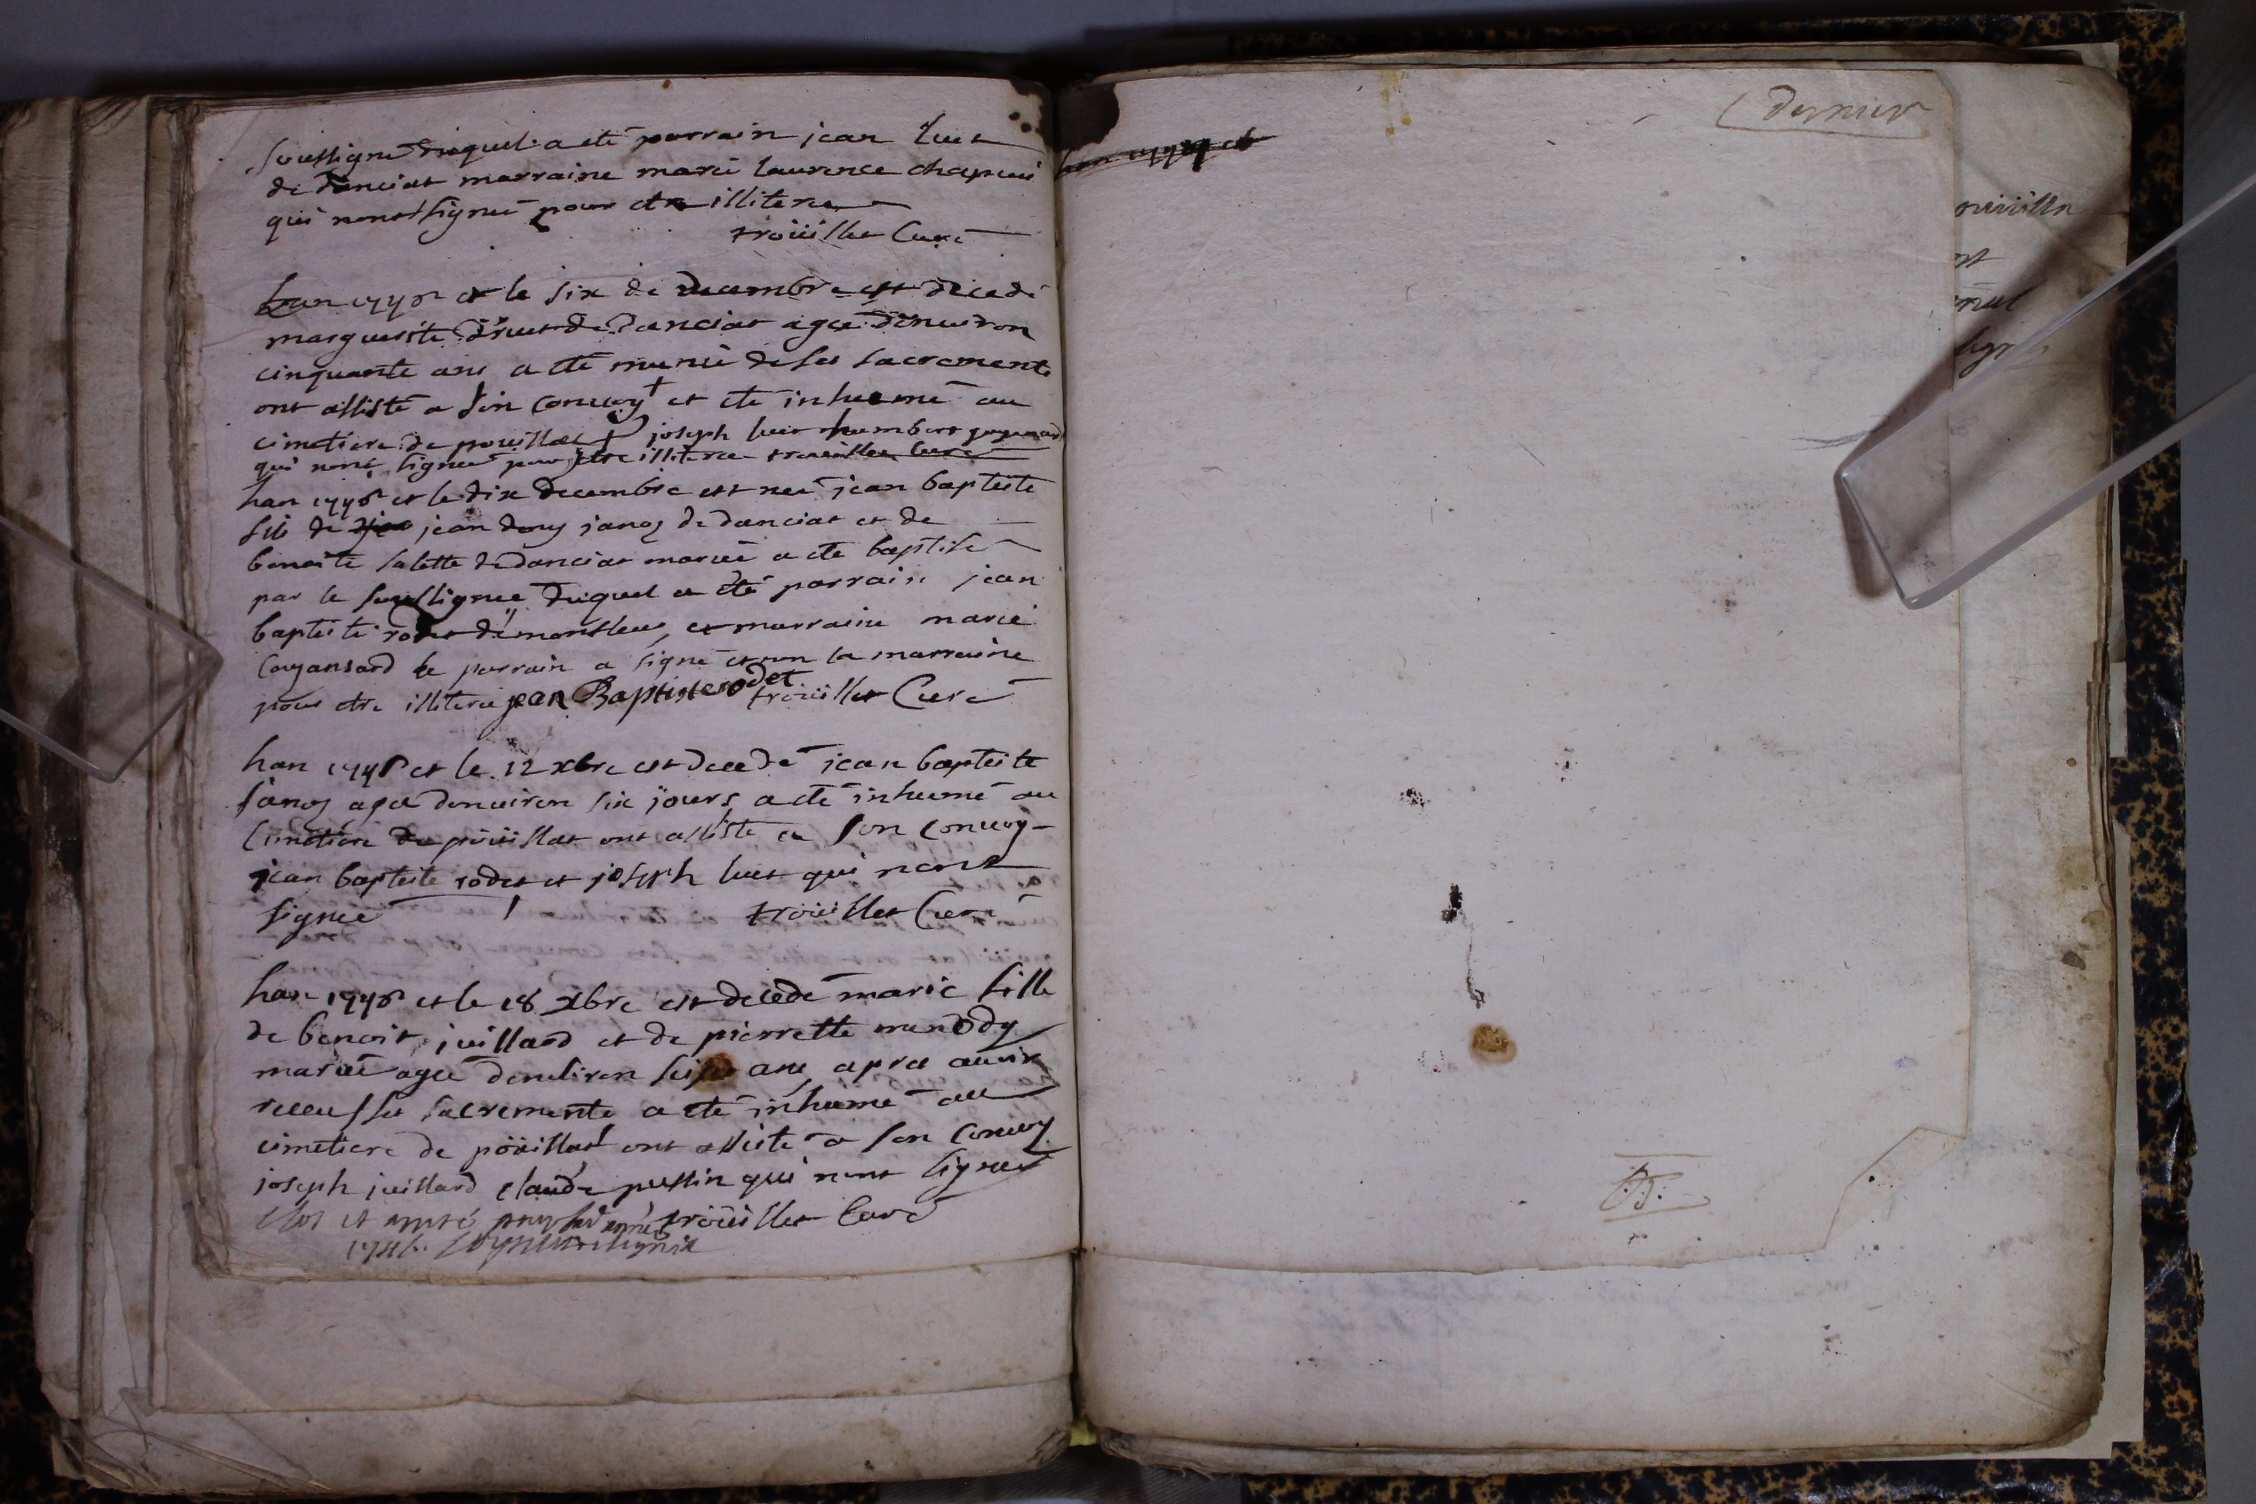 soussigné duquel a eté parrain jean luet
de danciat marraine marie laurence chapuui
qui nont signeé pour etre illiteré
troüillet Curé
han 1748 et le six de decembre est decedé
marguerite druet de Danciat ageé denuiron
cinquante ans a eté munie de ses sacrements
ont assisté a son conuoy + et eté inhumé au
cimetiere de pouillat joseph luet humbert
qui nont signeé pour etre illiteré trouillet Curé
han 1748 et le dix decembre est neé jean baptiste
fils de jean denys janoz de danciat et de
benoite salette de danciat marieé a eté baptisé
par le soussigneé duquel a eté parrain jean
baptiste rodet de monsleus et marraine marie
Coyansard le parrain a signé et non la marraine
pour etre illiteré jean Baptiste rodet troüillet Curé
han 1748 et le 12 xbre est decedé jean baptiste
janoz ageé denuiron six jours a eté inhumé au
Cimetiere de poüillat ont assisté a son conuoy
jean baptiste rodet et joseph luet qui nont
signeé troüillet Curé
han 1748 et le 18 xbre est decedé marie fille
de benoit juillard et de pierrette
marieé ageé denuiron ans apres auoir
receu ses sacrements a eté inhumé au
cimetiere de poüillat ont assisté a son conuoy
joseph juillard claude pussin qui nont signeé
troüillet Curé
clos et arreté pour lad année
dernier